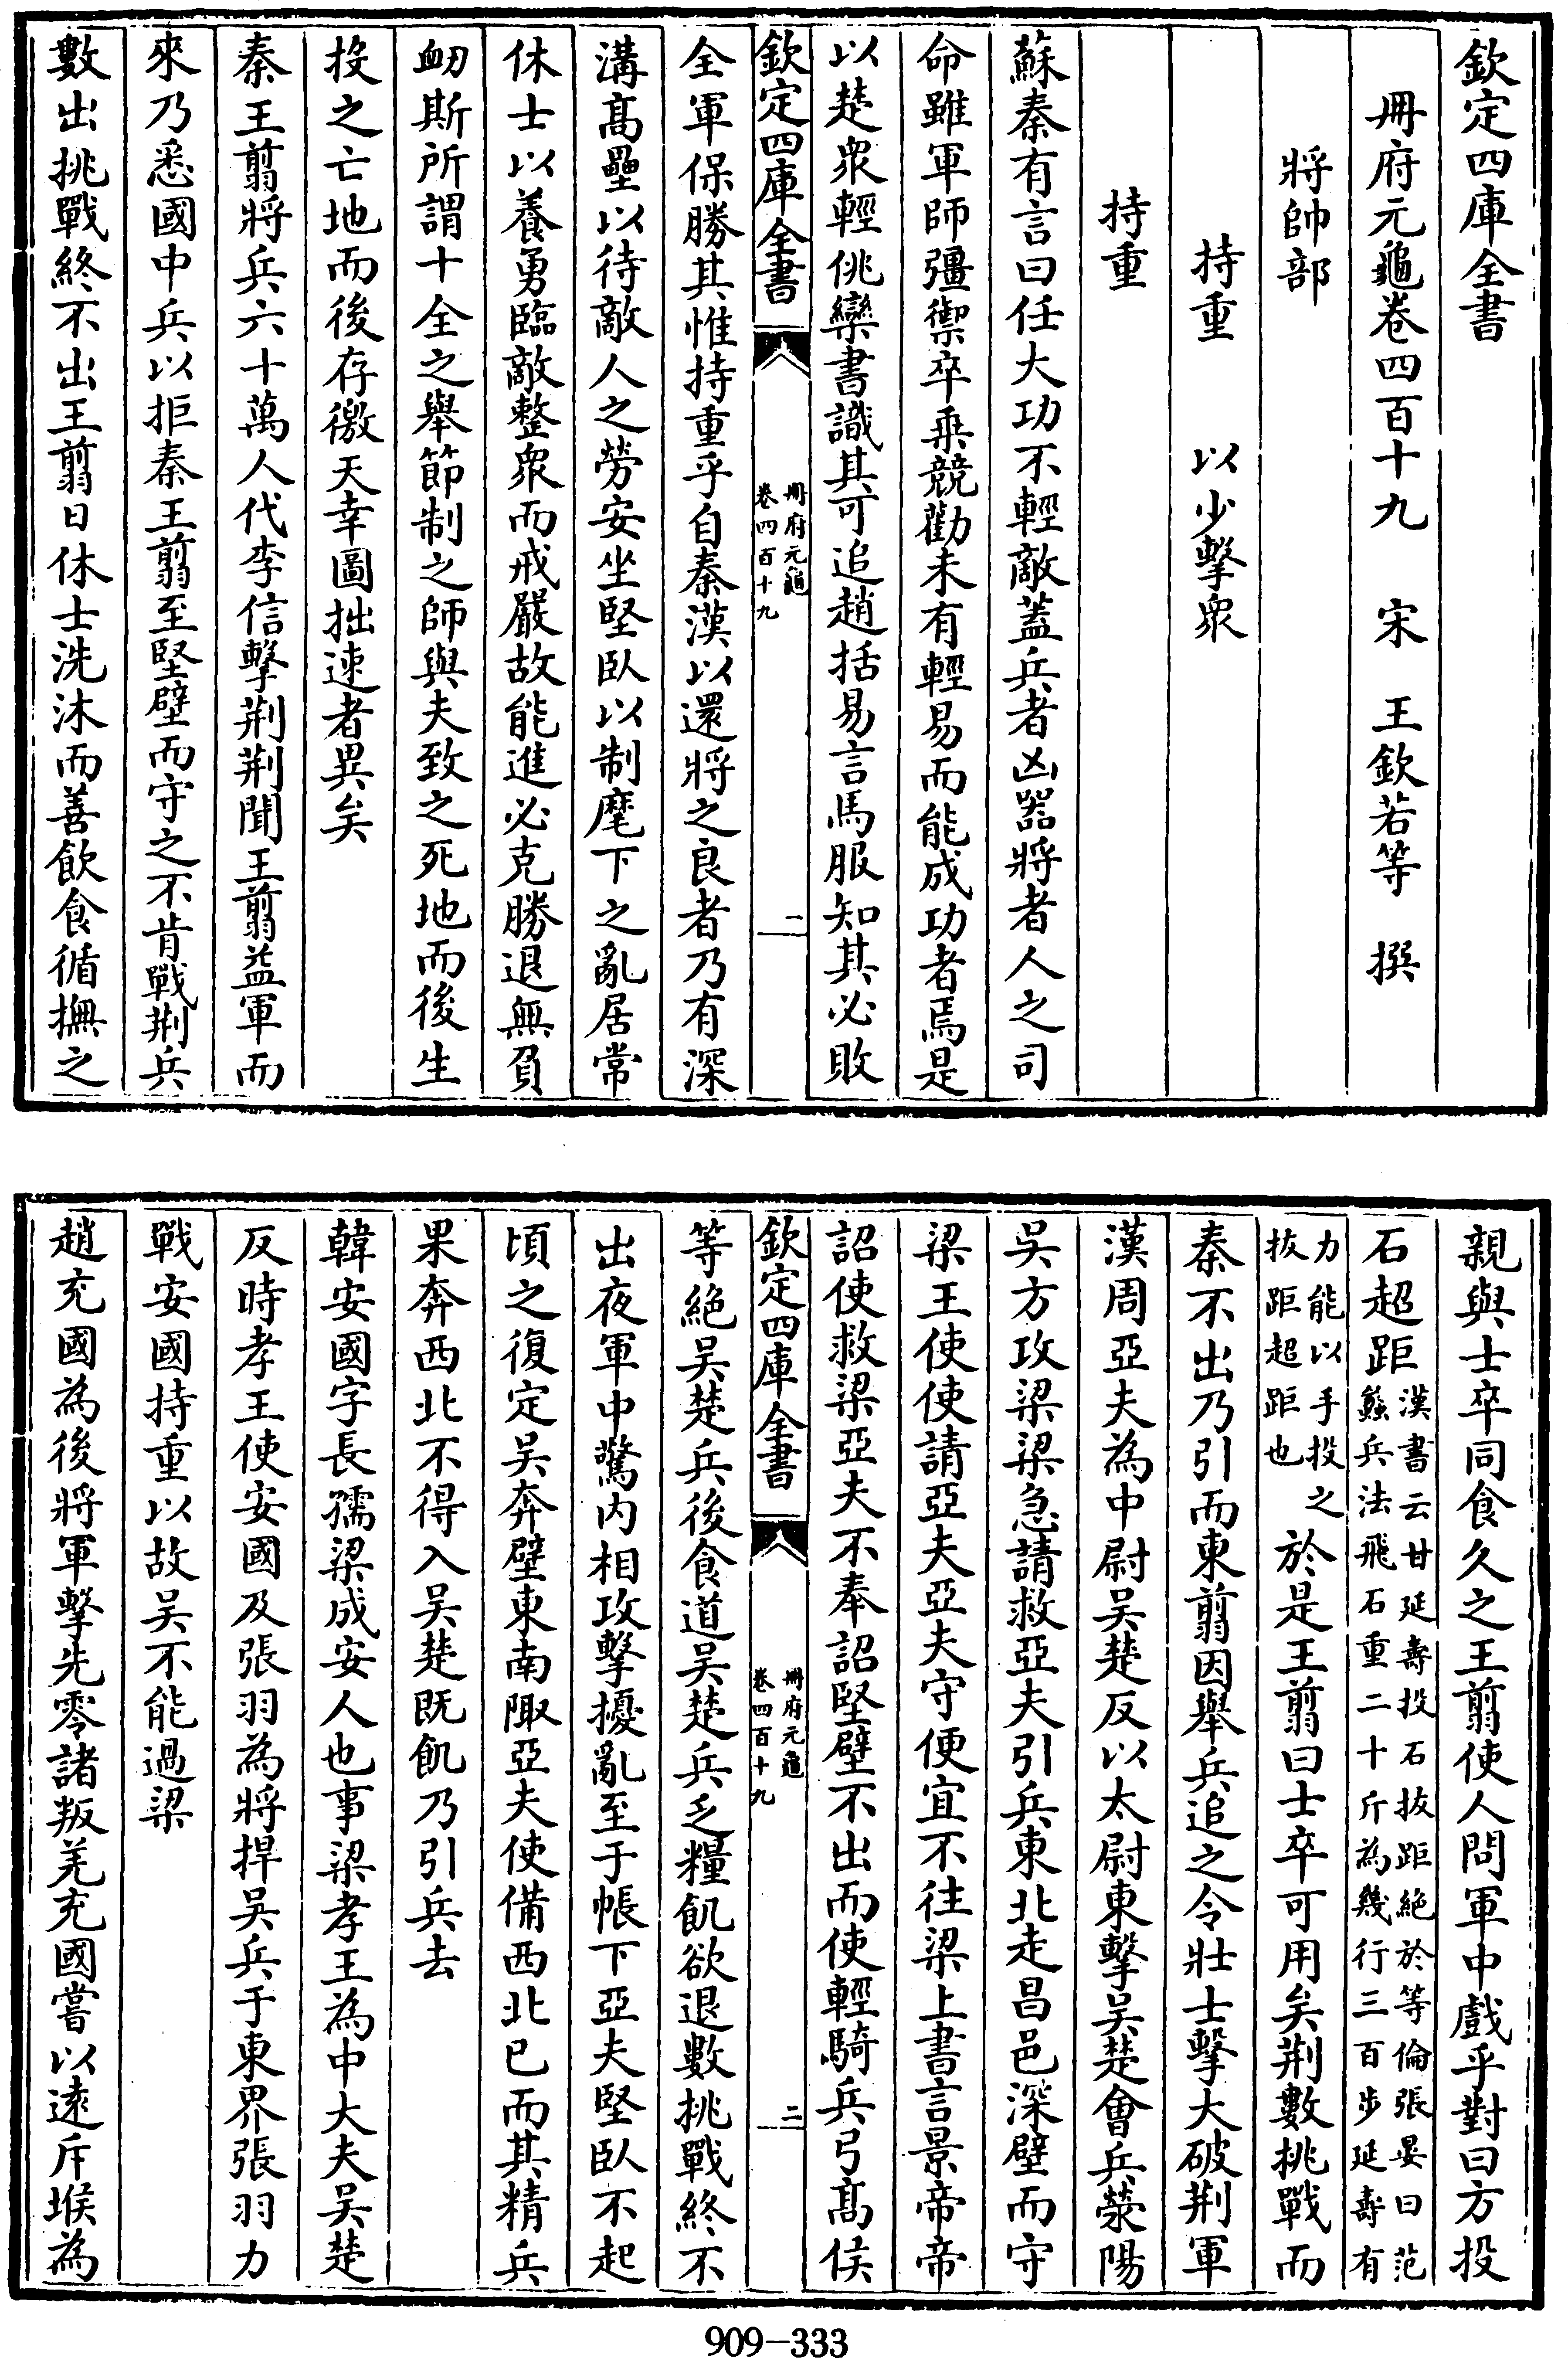 欽定四庫全書
冊府元龜卷四百十九　宋　王欽若等　撰
將帥部
持重　以少擊衆
持重
蘇秦有言曰任大功不輕敵蓋兵者凶器將者人之司
命雖軍師彊禦卒乘競勸未有輕易而能成功者焉是
以楚衆輕佻欒書識其可追趙括易言馬服知其必敗
欽定四庫全書
冊府元龜
卷四百十九
一
全軍保勝其惟持重乎自秦漢以還將之良者乃有深
溝髙壘以待敵人之勞安坐堅臥以制麾下之亂居常
休士以養勇臨敵整衆而戒嚴故能進必克勝退無負
衂斯所謂十全之舉節制之師與夫致之死地而後生
投之亡地而後存徼天幸圖拙速者異矣
秦王翦將兵六十萬人代李信擊荆荆聞王翦益軍而
來乃悉國中兵以拒秦王翦至堅壁而守之不肯戰荆兵
數出挑戰終不出王翦日休士洗沐而善飲食循撫之
親與士卒同食久之王翦使人問軍中戲乎對曰方投
石超距漢書云甘延壽投石拔距絶於等倫張晏曰范
蠡兵法飛石重二十斤為幾行三百步延壽有
力能以手投之
拔距超距也
於是王翦曰士卒可用矣荆數挑戰而
秦不出乃引而東翦因舉兵追之令壯士擊大破荆軍
漢周亞夫為中尉吴楚反以太尉東擊吴楚會兵滎陽
吴方攻梁梁急請救亞夫引兵東北走昌邑深壁而守
梁王使使請亞夫亞夫守便宜不往梁上書言景帝帝
詔使救梁亞夫不奉詔堅壁不出而使輕騎兵弓髙侯
欽定四庫全書
冊府元龜
卷四百十九
二
等絶吴楚兵後食道吴楚兵乏糧飢欲退數挑戰終不
出夜軍中驚内相攻擊擾亂至于帳下亞夫堅臥不起
頃之復定吴奔壁東南陬亞夫使備西北已而其精兵
果奔西北不得入吴楚既飢乃引兵去
韓安國字長孺梁成安人也事梁孝王為中大夫吴楚
反時孝王使安國及張羽為將捍吴兵于東界張羽力
戰安國持重以故吴不能過梁
趙充國為後將軍擊先零諸叛羌充國嘗以遠斥堠為
909-333